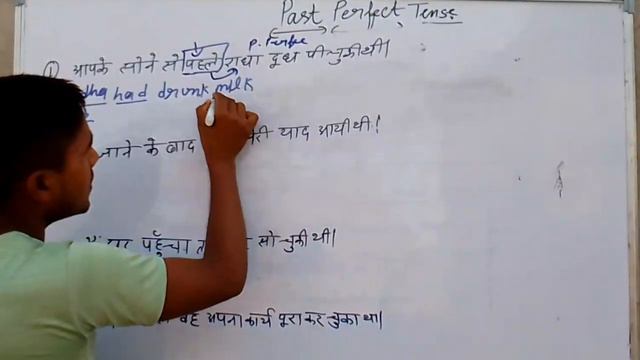 Past Perfect Tense
P. Perfec
① आपके सोने से पहले राधा दूध पी चुकी थी।
had drunk milk
जाने के बाद याद आयी थी।
पहुँचा सो चुकी थी।
वह अपना कार्य पूरा कर चुका था।